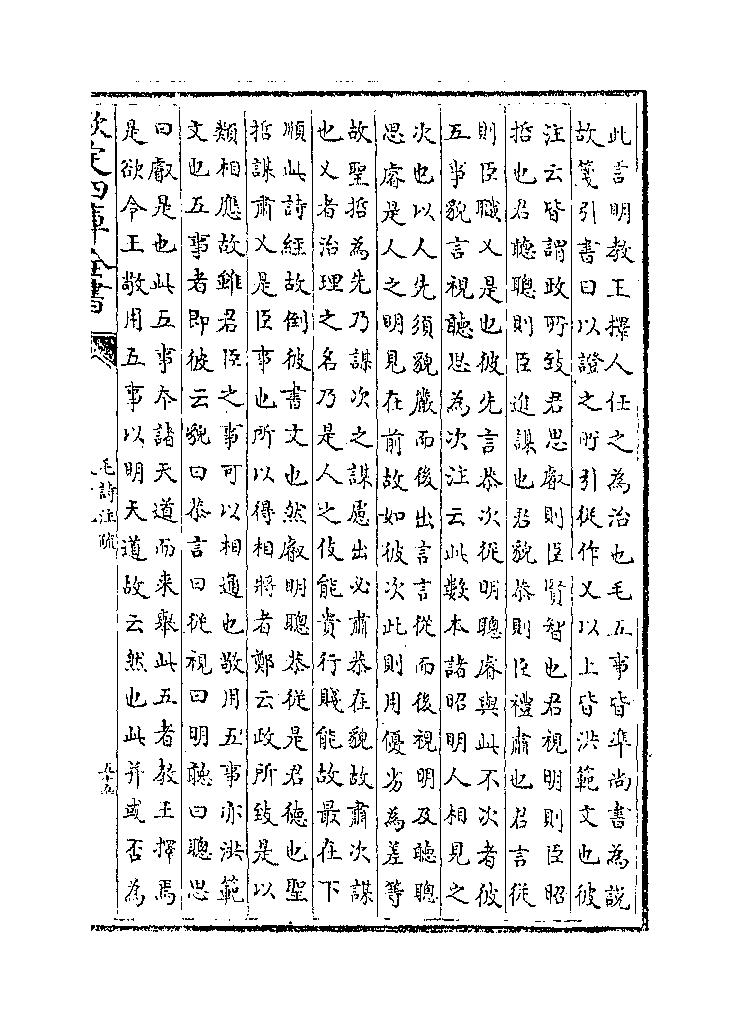 此言明教王擇人任之為治也毛五事皆準尚書為說
故箋引書曰以證之所引從作乂以上皆洪範文也彼
注云皆謂政所致君思叡則臣賢智也君視明則臣昭
哲也君聽聰則臣進謀也君貌恭則臣禮肅也君言從
則臣職乂是也彼先言恭次從明聰睿與此不次者彼
五事貌言視聽思為次注云此數本諸昭明人相見之
次也以人先須貌嚴而後出言言從而後視明及聽聰
思睿是人之明見在前故如彼次此則用優劣為差等
故聖哲為先乃謀次之謀慮出必肅恭在貌故肅次謀
也乂者治理之名乃是人之伎能貴行賤能故最在下
順此詩經故倒彼書文也然叡明聰恭從是君德也聖
哲謀肅乂是臣事也所以得相將者鄭云政所致是以
類相應故雖君臣之事可以相通也敬用五事亦洪範
文也五事者即彼云貌曰恭言曰從視曰明聽曰聰思
曰叡是也此五事本諸天道而来舉此五者教王擇焉
是欲令王敬用五事以明天道故云然也此并或否為
欽定四庫全書
毛詩注疏
五十五